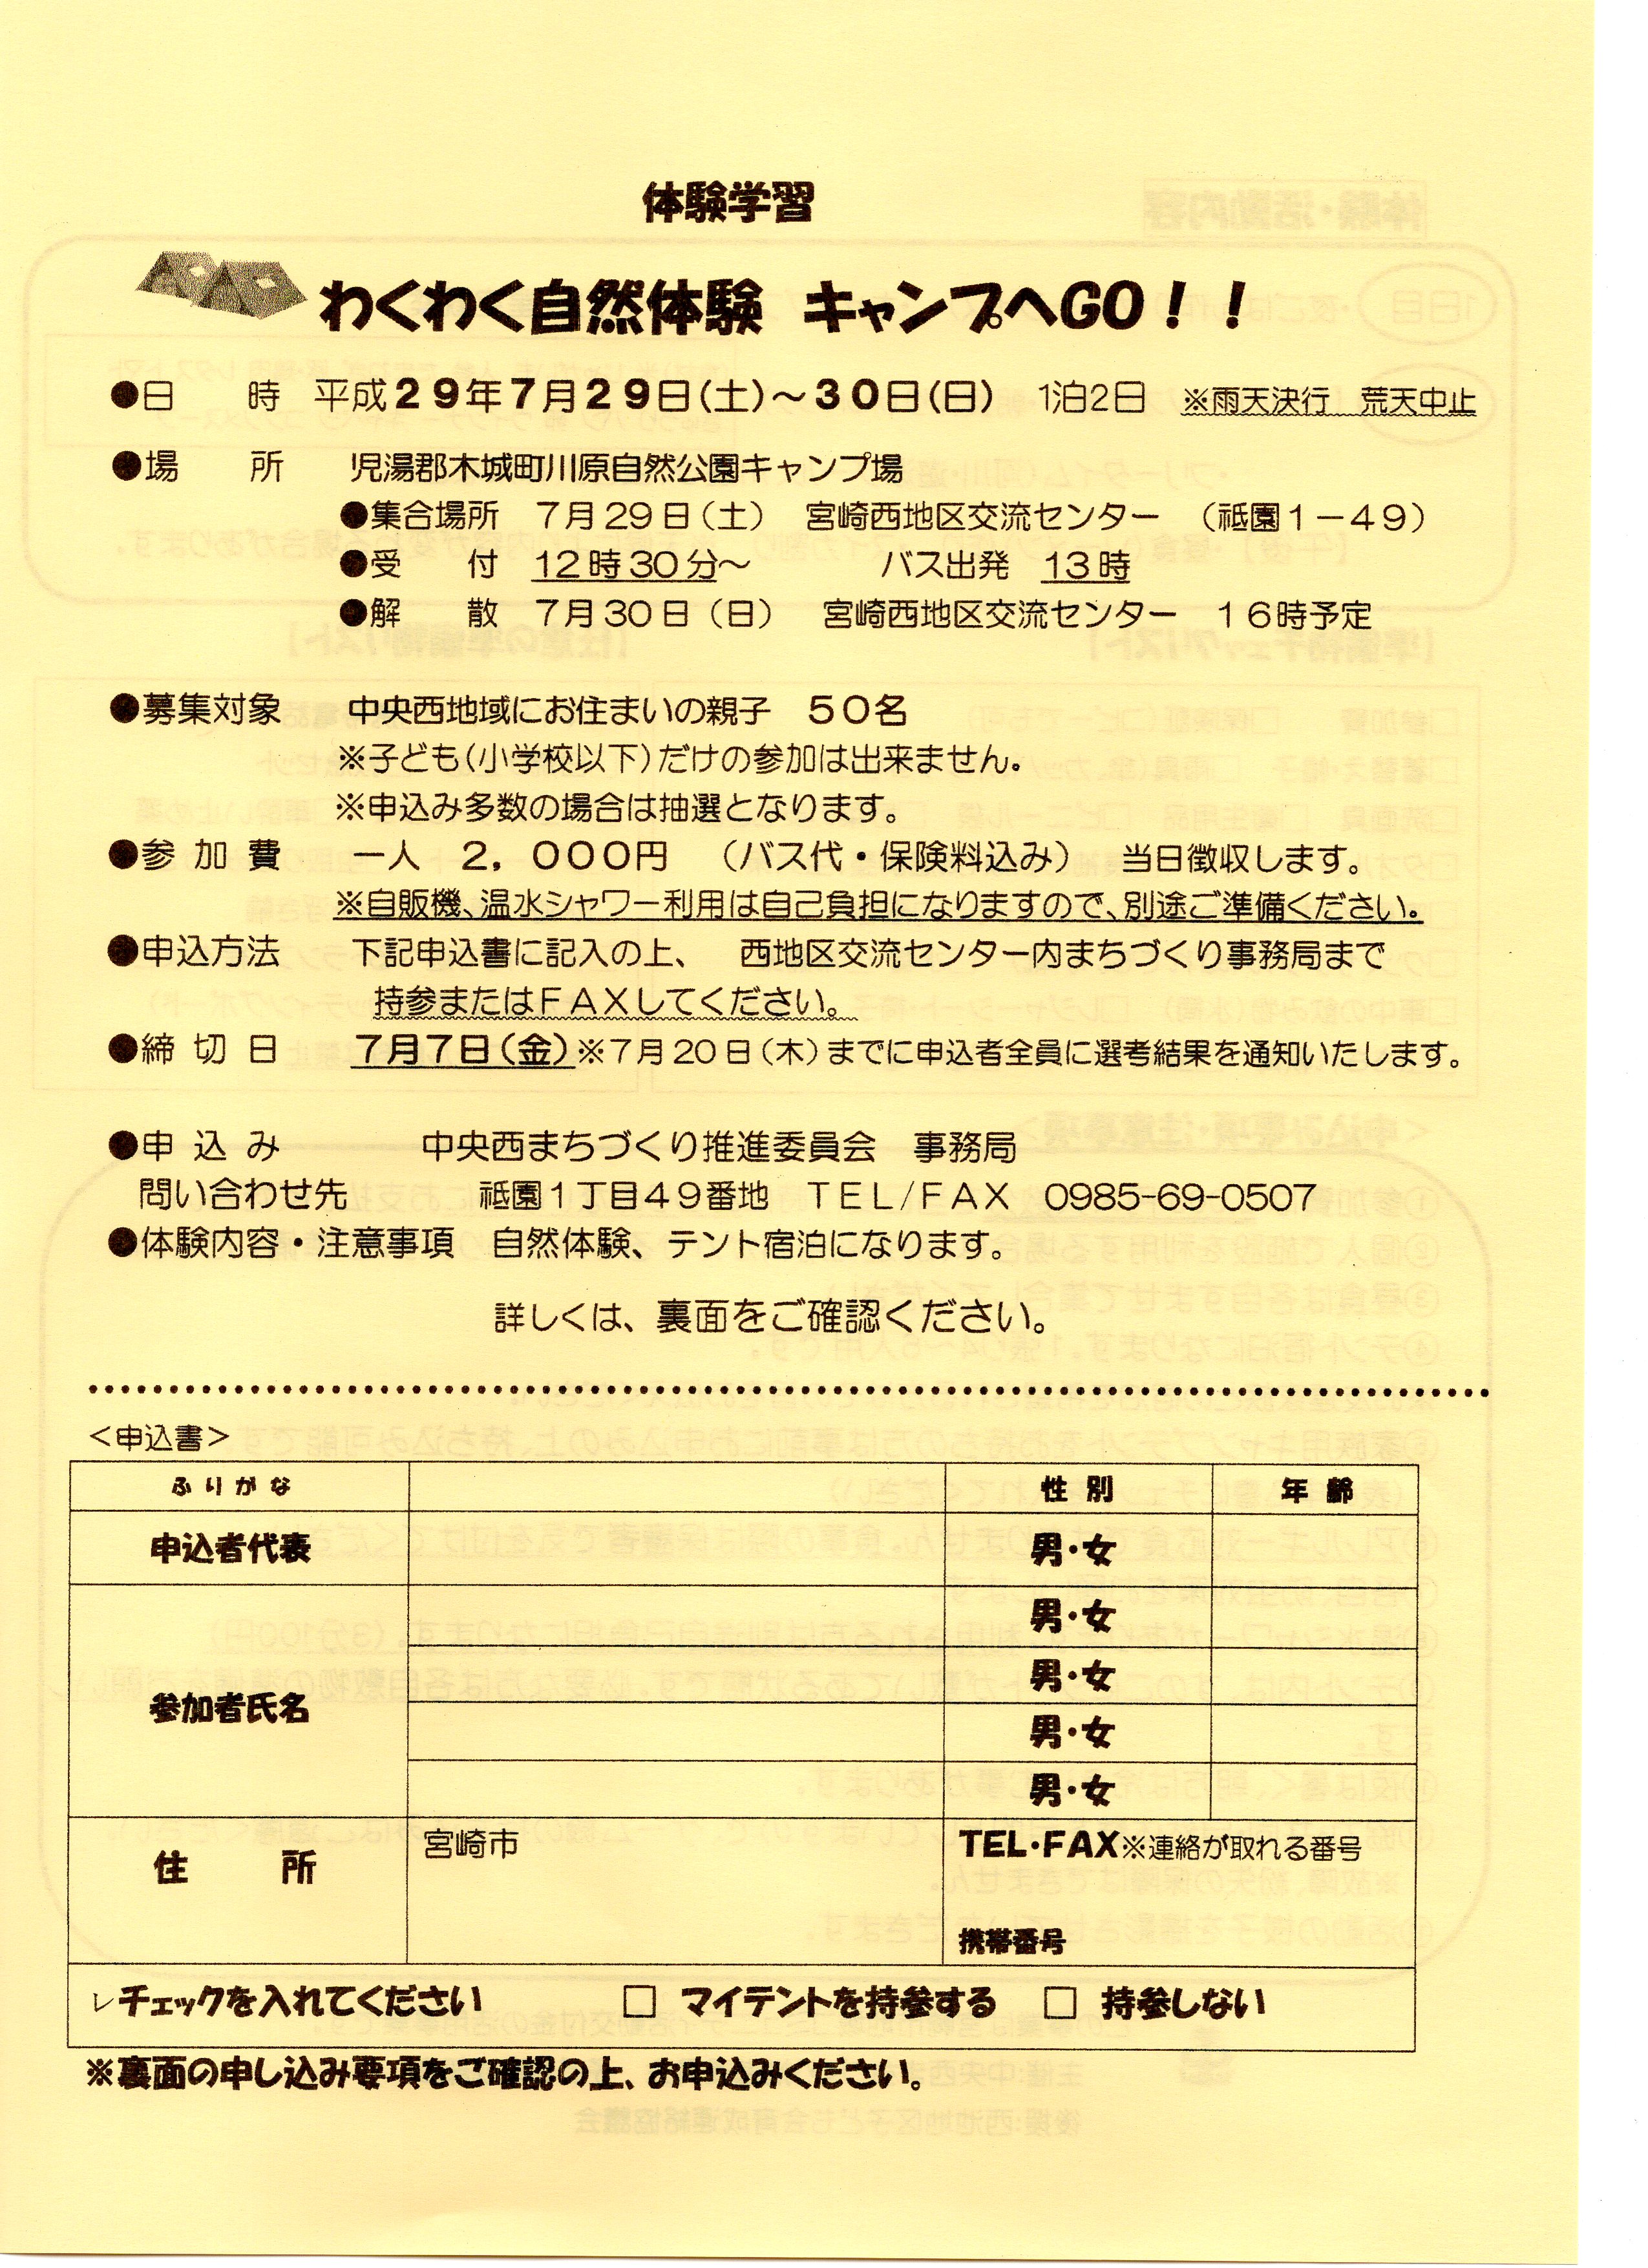 体験学習
わくわく自然体験　キャンプへGO！！
●日　時　平成29年7月29日(土)～30日(日)　1泊2日　※雨天決行　荒天中止
●場　所　児湯郡木城町川原自然公園キャンプ場
●集合場所　7月29日(土)　宮崎西地区交流センター　（祗園1－49）
●受　付　12時30分～　バス出発　13時
●解　散　7月30日（日）　宮崎西地区交流センター　16時予定
●募集対象　中央西地域にお住まいの親子　50名
※子ども(小学校以下)だけの参加は出来ません。
※申込み多数の場合は抽選となります。
●参加費　一人　2，000円　（バス代・保険料込み）　当日徴収します。
※自販機、温水シャワー利用は自己負担になりますので、別途ご準備ください。
●申込方法　下記申込書に記入の上、　西地区交流センター内まちづくり事務局まで
持参またはFAXしてください。
●締切日　7月7日(金)※7月20日(木)までに申込者全員に選考結果を通知いたします。
●申込み　中央西まちづくり推進委員会　事務局
問い合わせ先　祗園1丁目49番地　TEL/FAX　0985-69-0507
●体験内容・注意事項　自然体験、テント宿泊になります。
詳しくは、裏面をご確認ください。
＜申込書＞
ふりがな　性別　年齢
申込者代表　男・女
男・女
男・女
参加者氏名
男・女
男・女
住　所　宮崎市　TEL・FAX※連絡が取れる番号
携帯番号
レチェックを入れてください　□　マイテントを持参する　□　持参しない
※裏面の申し込み要項をご確認の上、お申込みください。